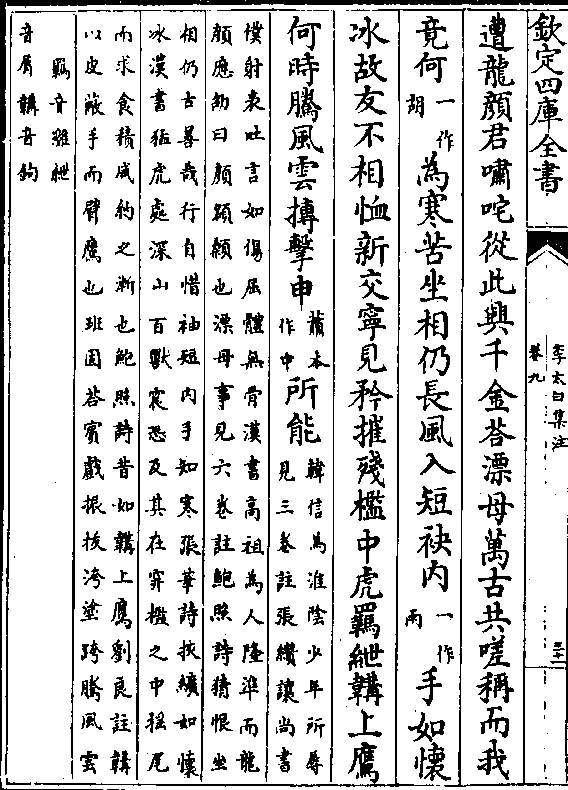 欽定四庫全書
李太白集注
卷九
遭龍顔君嘯咤從此興千金荅漂母萬古共嗟稱而我
竟何一作胡為寒苦坐相仍長風入短袂内一作兩手如懷
冰故友不相恤新交寧見矜摧殘檻中虎羈紲韝上鷹
何時騰風雲搏擊申蕭本作中所能韓信為淮陰少年所辱
見三卷註張纘讓尚書
僕射表吐言如傷屈體無骨漢書高祖為人隆準而龍
顔應劭曰顔額顙也漂母事見六卷註鮑照詩猜恨坐
相仍古善哉行自惜袖短内手知寒張華詩挾纊如懷
冰漢書猛虎處深山百獸震恐及其在穽檻之中揺尾
而求食積威約之漸也鮑照詩昔如韝上鷹劉良註韝
以皮蔽手而臂鷹也班固荅賓戲振拔洿塗跨騰風雲
羈音雞紲
音屑韝音鉤